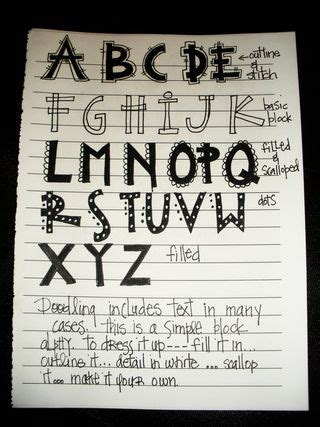 A B C D E ← outline & stitch
F G H I J K basic block
L M N O P Q filled & scalloped
R S T U V W dots
X Y Z filled
Doodling includes text in many
cases. this is a simple block
alpha. to dress it up --- fill it in...
outline it... detail in white ... scallop
it... make it your own.